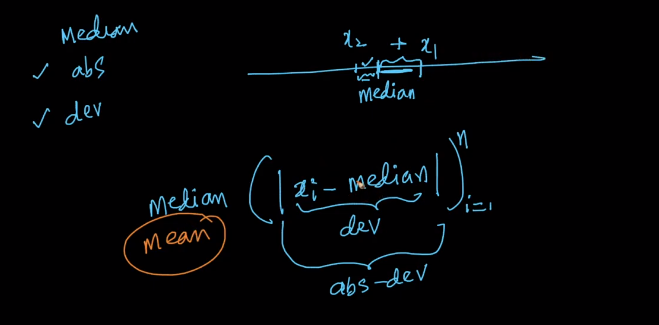 Median
✓ abs
✓ dev
x₂ + x₁
✓
Median
Median ( | xi - Median | )ⁿ i=1
Mean
dev
abs-dev